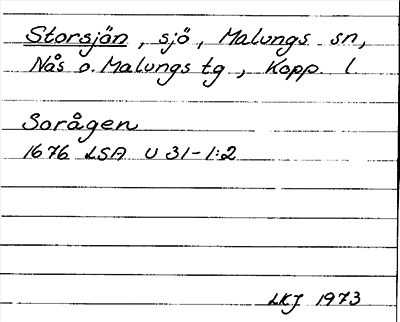 Storsjön, sjö, Malungs sn,
Nås o. Malungs tg, Kopp. l.
Sorågen
1676 LSA U 31-1:2
LKJ 1973